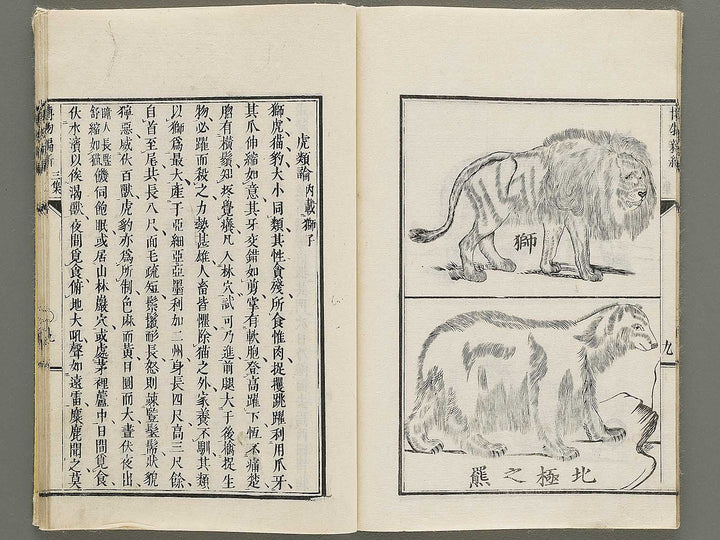 九
獅
北極之熊
虎類論 內載獅子
獅虎猫豹大小同類其性貪殘所食惟肉捉攫跳躍利用爪牙
其爪伸縮如意其牙交錯如剪掌有軟胞登高躍下恆不痛楚
有橫鬚知覺礙凡入林穴試可乃進前腿大于後擒捉生
物必躍而殺之力勢甚雄人畜皆懼除猫之外家養不馴其類
以獅爲最大產于亞細亞亞墨利加二州身長四尺高三尺餘
自首至尾共長八尺面毛疏短鬃鬣長怒則竦豎髮狀貌
獰惡咸伏百獸虎豹亦爲所制色麻而黃目圓而大晝伏夜出
人長豎舒縮如猫饑伺飽眠或居山林巖穴或處茅裡蘆中日間覓食
伏水濱以俟渴獸夜間覓食俯地大吼聲如遠雷麋鹿聞之莫
博物新編 三集